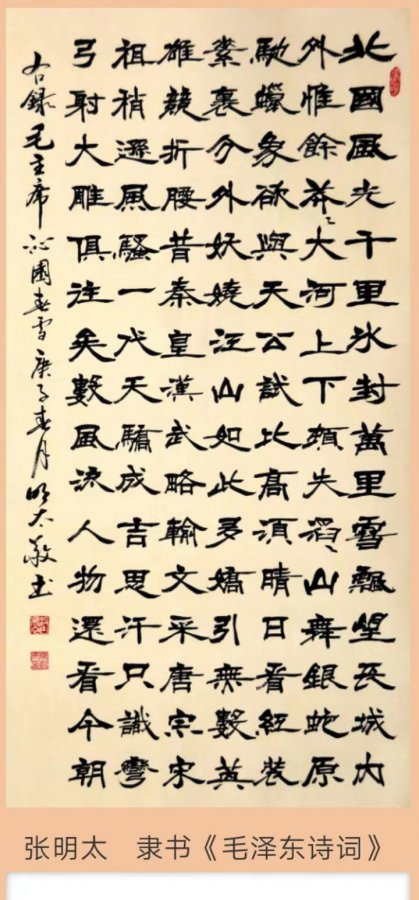 北國風光千里氷封萬里雪飄望長城內
外惟餘莽〻大河上下頓失滔〻山舞銀蛇原
馳蠟象欲與天公試比高須晴日看紅裝
素裹分外妖嬈江山如此多嬌引無數英
雄競折腰昔秦皇漢武略輸文采唐宗宋
祖稍遜風騷一代天驕成吉思汗只識彎
弓射大雕俱往矣數風流人物還看今朝
右錄毛主席沁園春雪庚子春月明太敬书
张明太　隶书《毛泽东诗词》